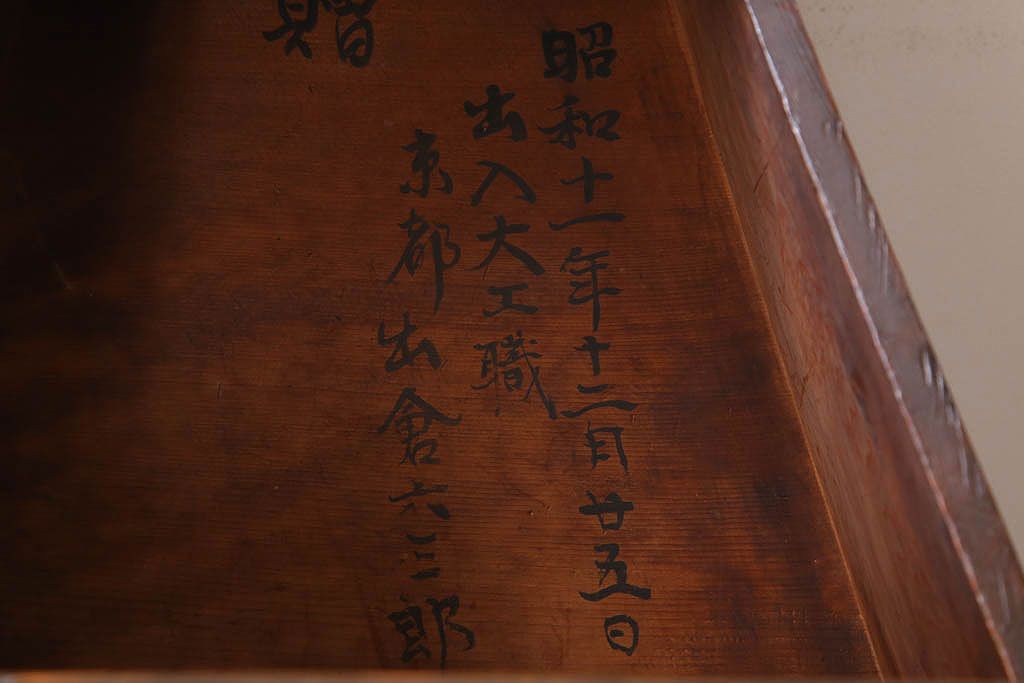 昭和十一年十二月廿五日
出入大工職
京都出倉六三郎
贈